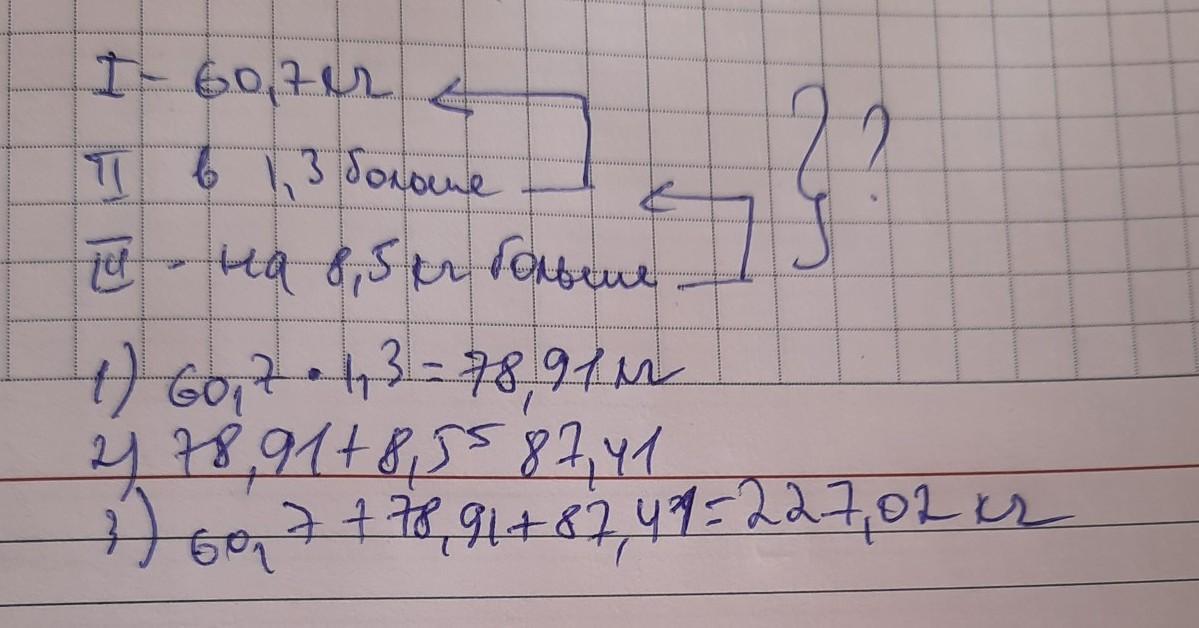 I - 60,7 кг
II в 1,3 больше
III - на 8,5 кг больше
} ?
1) 60,7 · 1,3 = 78,91 кг
2) 78,91 + 8,5 = 87,41
3) 60,7 + 78,91 + 87,41 = 227,02 кг